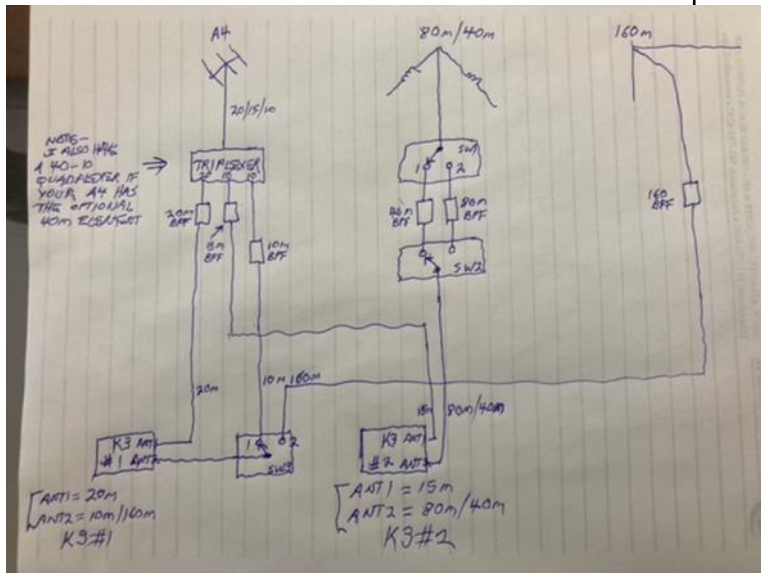 A4
80m/40m
160m
20/15/10
NOTE-
I ALSO HAVE
A 40-10
QUADPLEXER IF
YOUR A4 HAS
THE OPTIONAL
40m ELEMENT
TRIPLEXER
20 15 10
SW1
1 2
20m
BPF
15m
BPF
10m
BPF
40m
BPF
80m
BPF
SW2
160
BPF
20m
10m
160m
15m
80m/40m
K3 ANT1
#1 ANT2
1 2
SW3
K3 ANT1
#2 ANT2
ANT1 = 20m
ANT2 = 10m/160m
K3#1
ANT1 = 15m
ANT2 = 80m/40m
K3#2